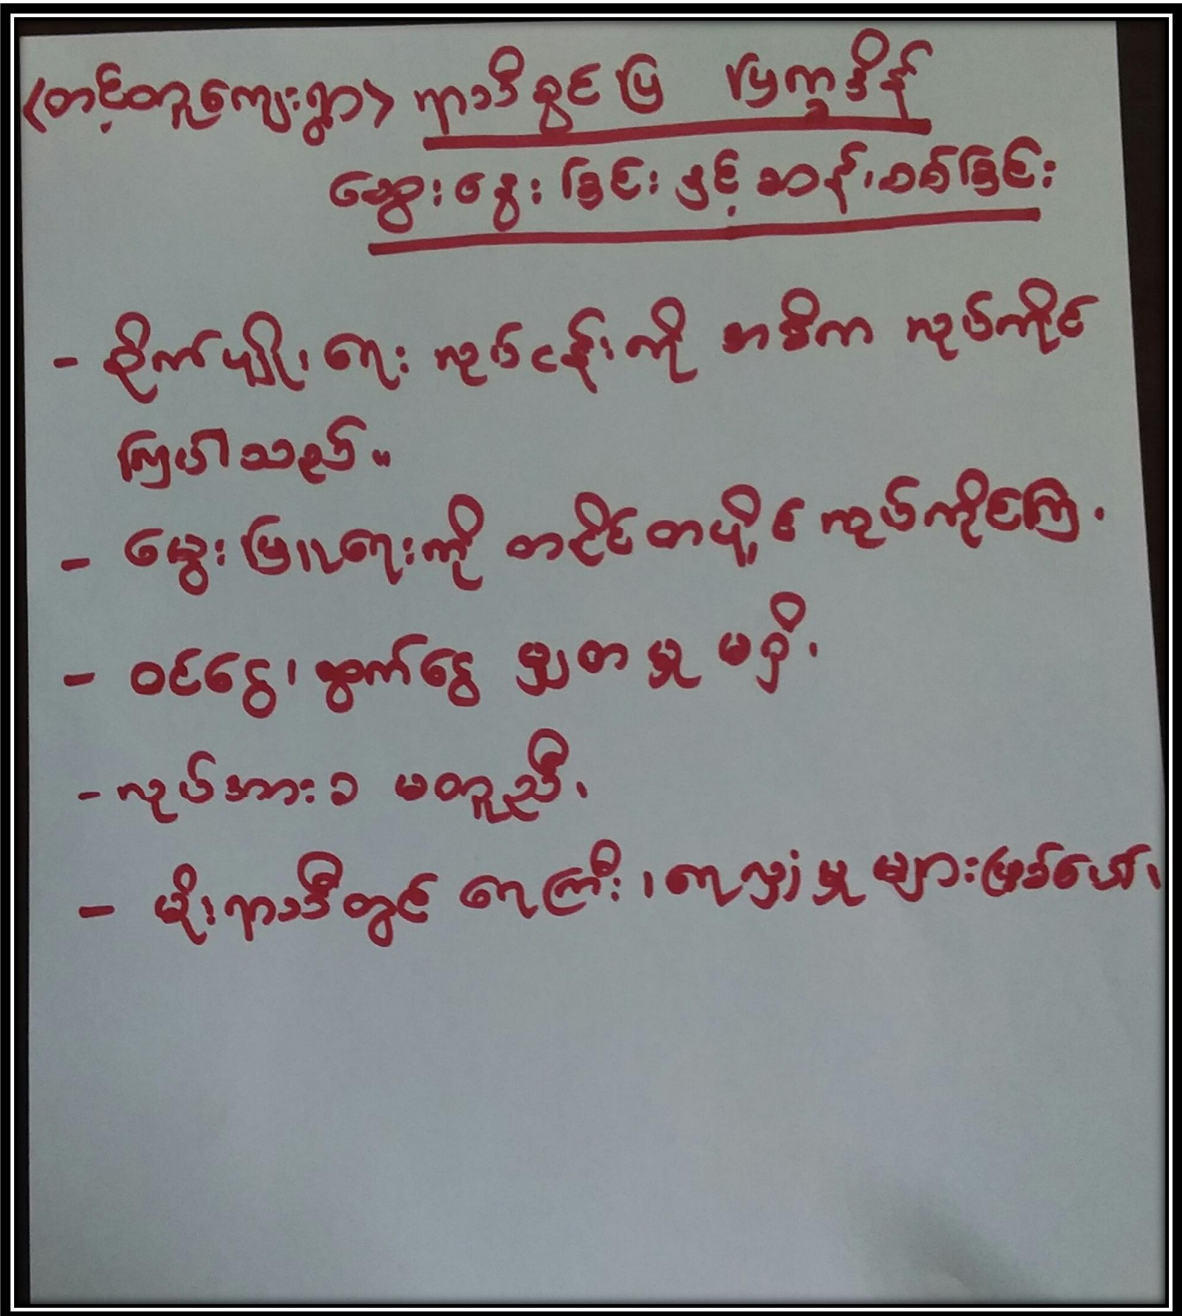 (တင့်တူကျေးရွာ) ရာသီခွင်ပြ ပြက္ခဒိန်
ဆွေးနွေးခြင်းနှင့်ဆန်းစစ်ခြင်း
- စိုက်ပျိုးရေးလုပ်ငန်းကို အဓိက လုပ်ကိုင်
ကြပါသည်။
- မွေးမြူရေးကို တနိုင်တပိုင် လုပ်ကိုင်ကြ၊
- ဝင်ငွေ၊ ထွက်ငွေ မျှတမှု မရှိ၊
- လုပ်အားခ မတူညီ၊
- မိုးရာသီတွင် ရေကြီး၊ ရေလျှံမှု များဖြစ်ပေါ်၊